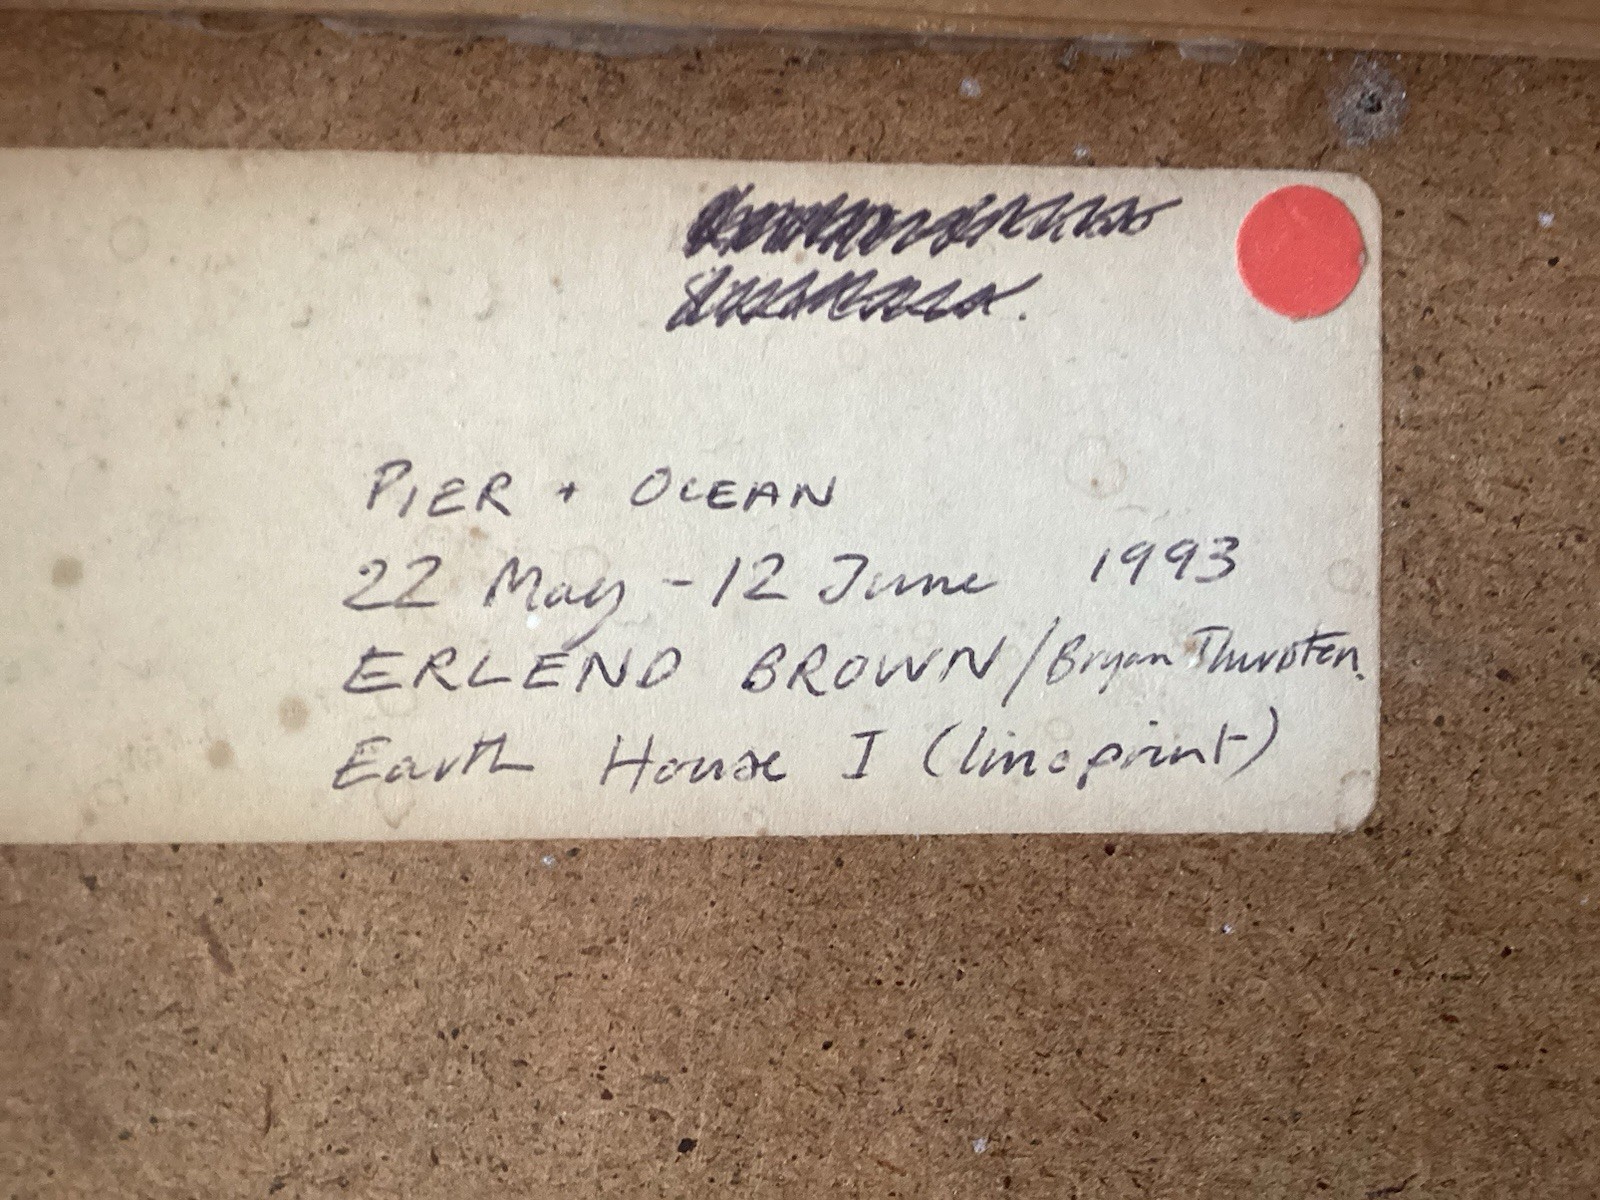 PIER + OCEAN
22 May - 12 June 1993
ERLEND BROWN / Bryan Thursten.
Earth House I (linoprint)